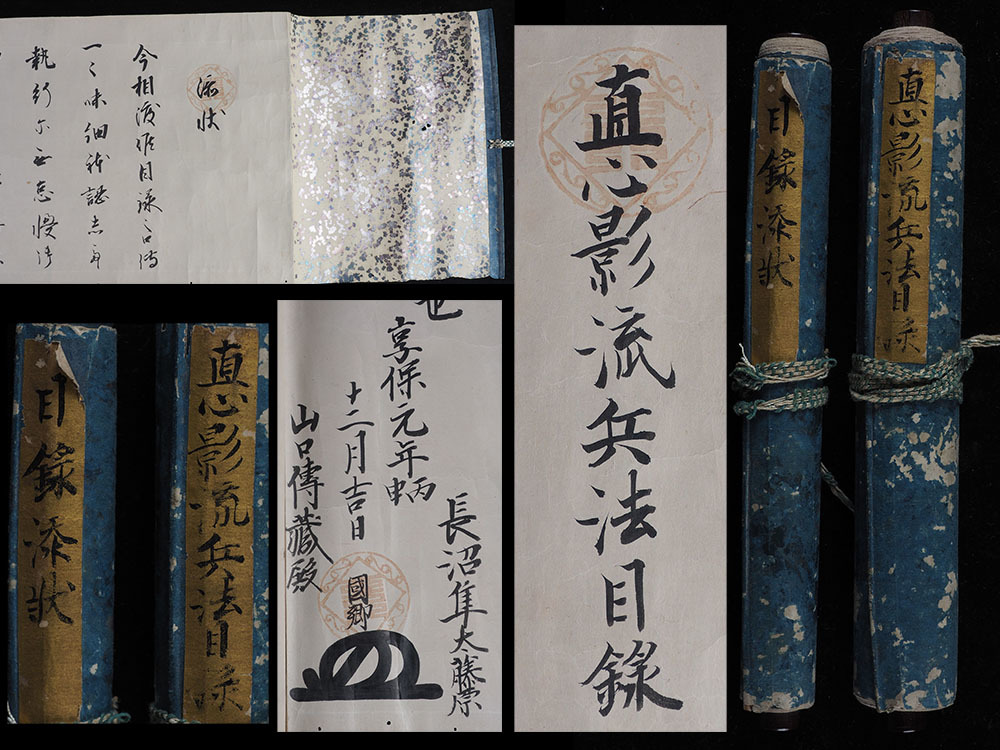 添状
今相渡候目録口傳
一々味細雖認志有
執行尓無怠慢修
目録添状
直心影流兵法目录
也
享保元年丙申
十二月吉日
長沼隼太藤原
國郷
山口傳藏殿
直心影流兵法目録
目録添状
直心影流兵法目录